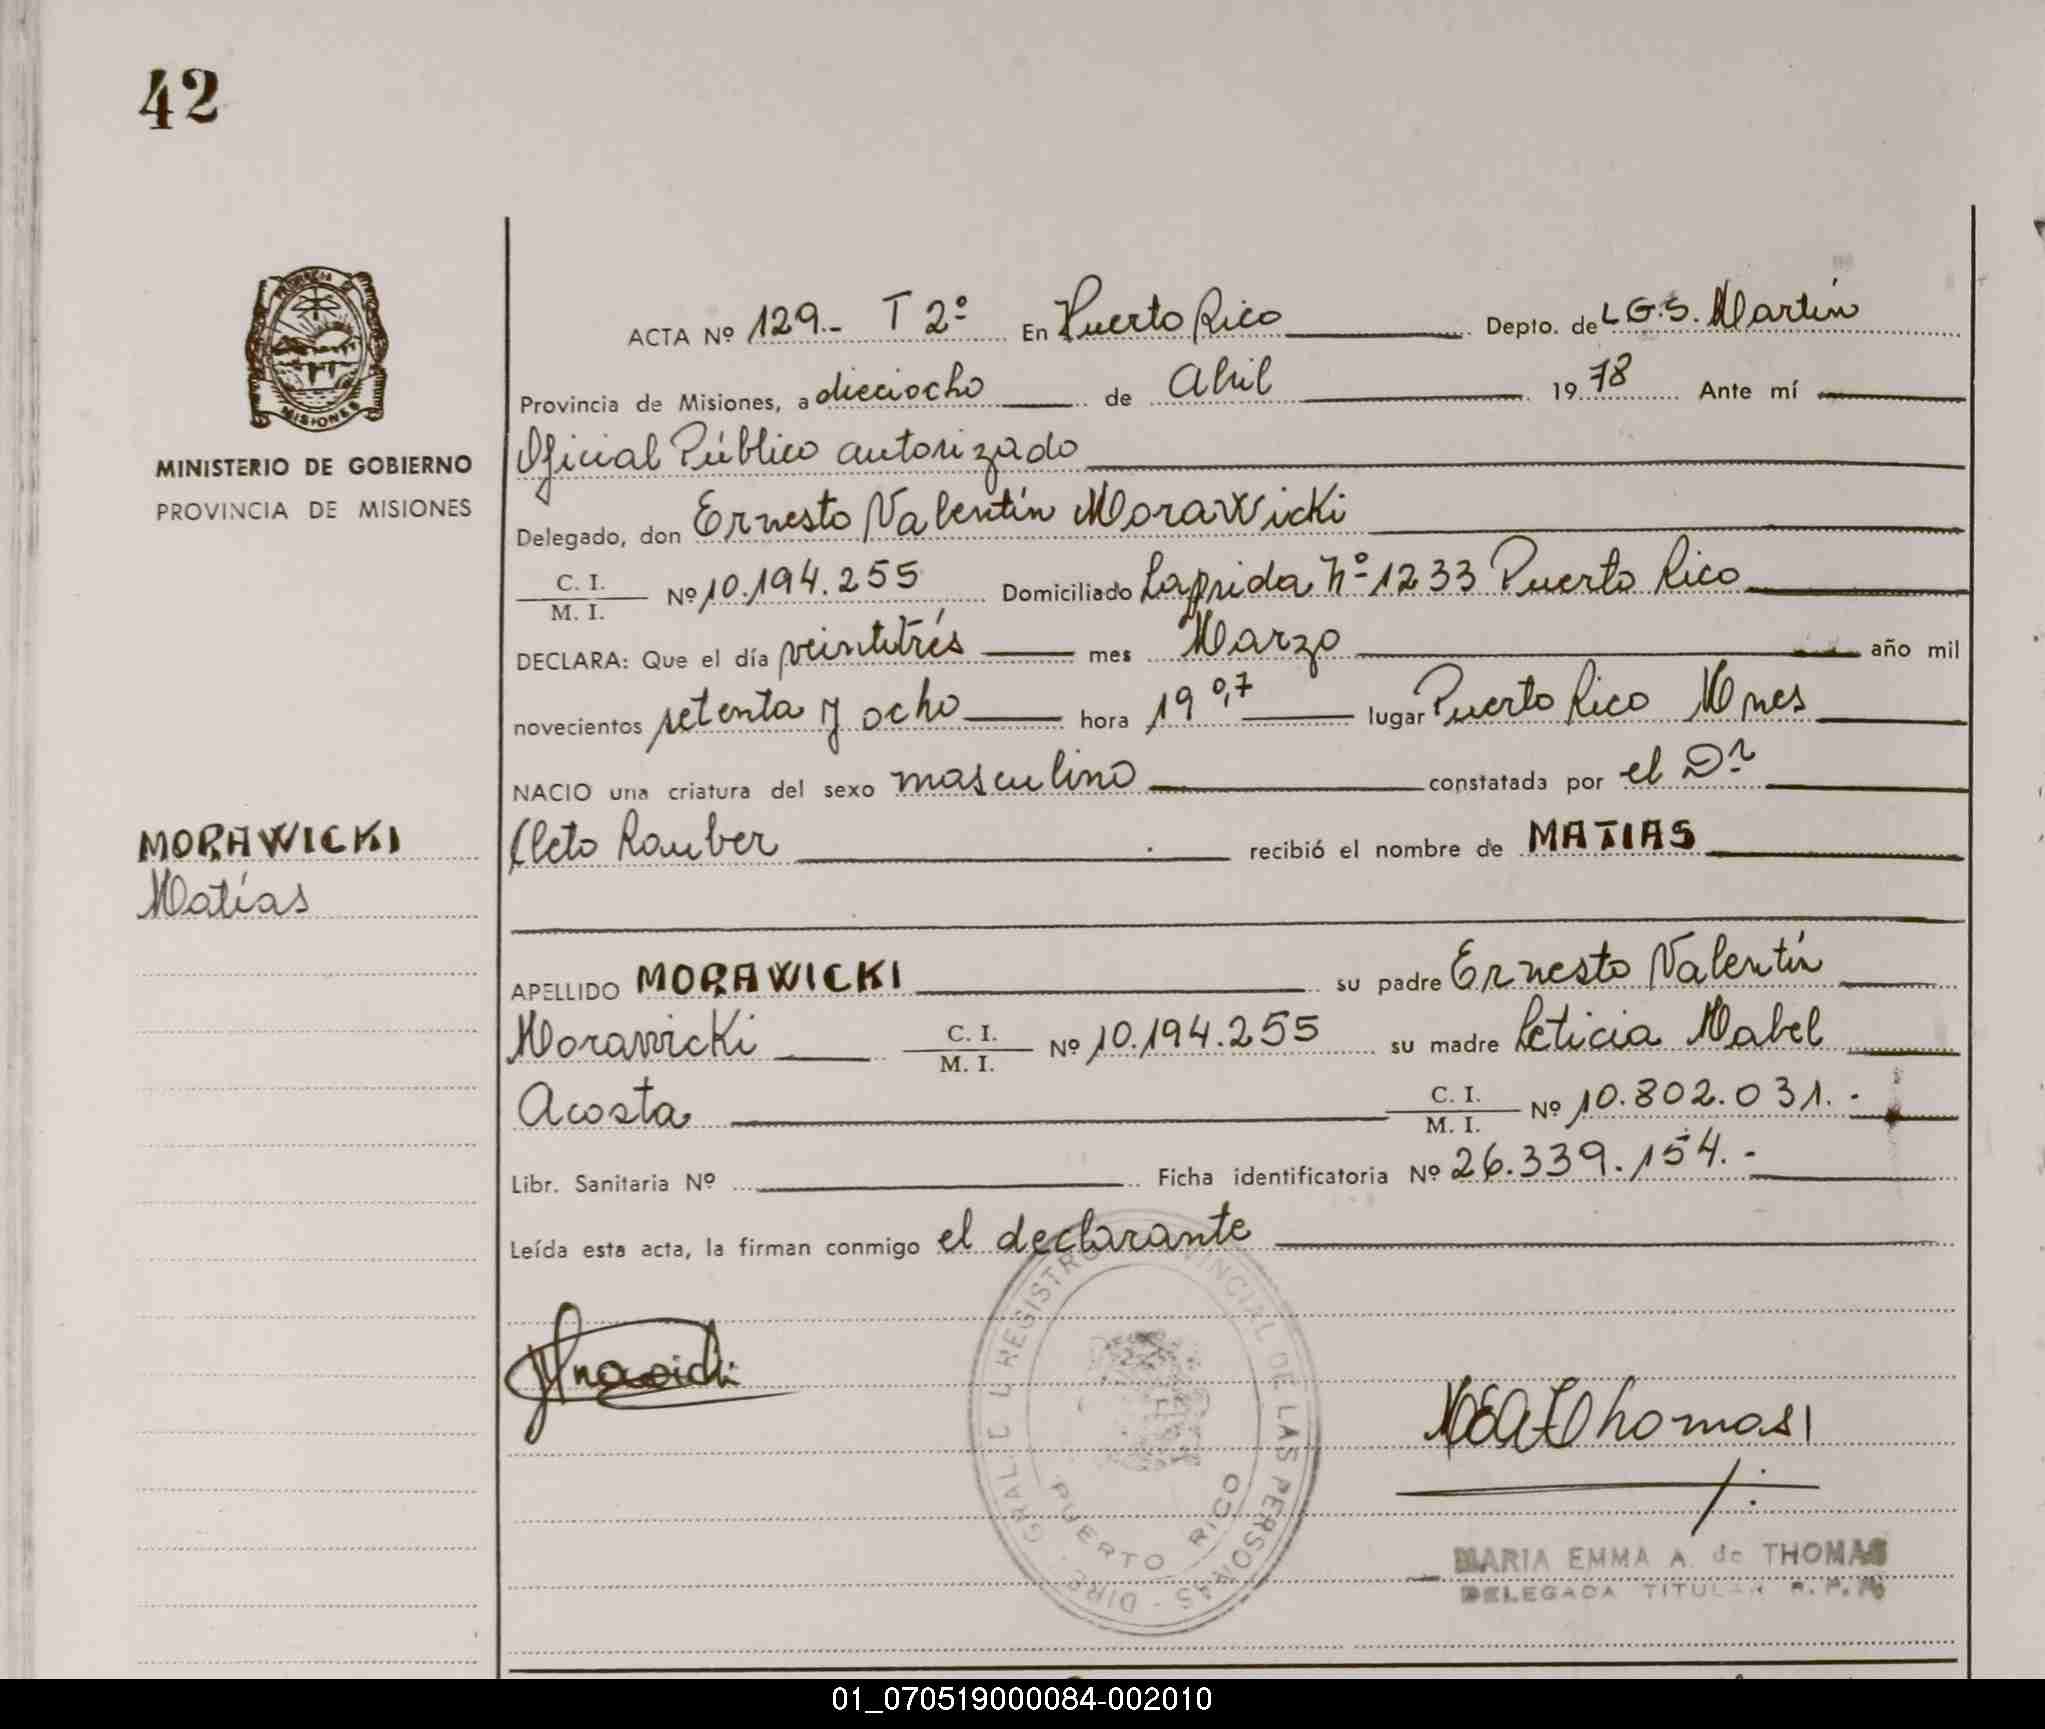 42
PROVINCIA DE
MISIONES
MINISTERIO DE GOBIERNO
PROVINCIA DE MISIONES
MORAWICKI
Matías
ACTA Nº 129.- T 2º En Puerto Rico Depto. de L G.S. Martín
Provincia de Misiones, a dieciocho de Abril 1978 Ante mí
Oficial Público autorizado
Delegado, don Ernesto Valentín Morawicki
C. I.
M. I. Nº 10.194.255 Domiciliado Laprida Nº 1233 Puerto Rico
DECLARA: Que el día veintitrés mes Marzo año mil
novecientos setenta y ocho hora 19 0,7 lugar Puerto Rico Mnes
NACIO una criatura del sexo masculino constatada por el Dr
Cleto Rauber recibió el nombre de MATIAS
APELLIDO MORAWICKI su padre Ernesto Valentín
Morawicki C. I.
M. I. Nº 10.194.255 su madre Leticia Mabel
Acosta C. I.
M. I. Nº 10.802.031.-
Libr. Sanitaria Nº Ficha identificatoria Nº 26.339.154.-
Leída esta acta, la firman conmigo el declarante
PUERTO RICO
MARIA EMMA A. de THOMAS
DELEGADA TITULAR R. P. P.
01_070519000084-002010